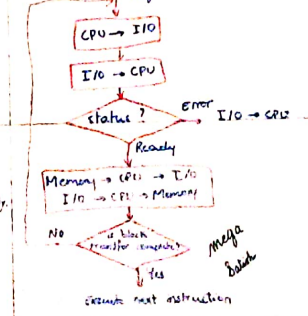 CPU → I/O
I/O → CPU
status ?
Error
I/O → CPU
Ready
Memory → CPU → I/O
I/O → CPU → Memory
NO
is block
transfer complete?
Yes
Execute next instruction
mega
Satish